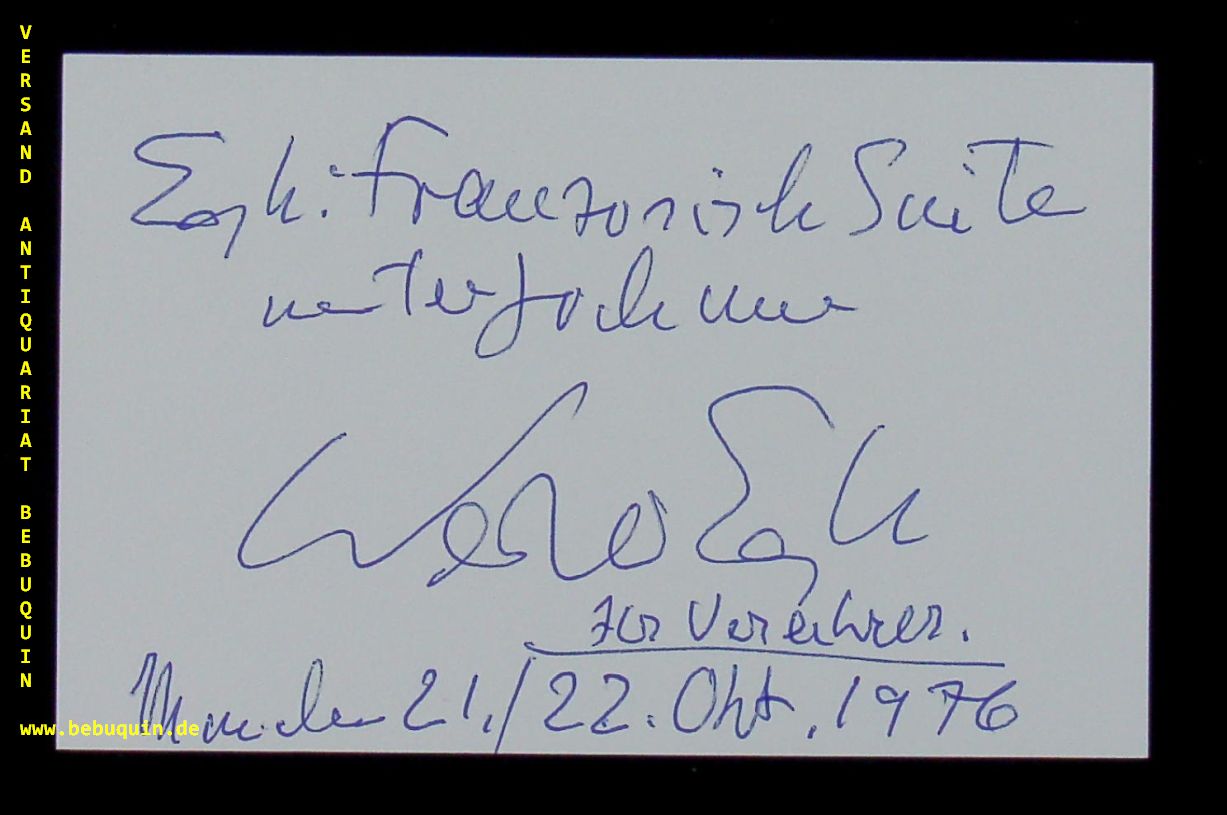 VERSAND ANTIQUARIAT BEBUQUIN
Egk: Französisch Suite
unter Jochum
Werner Egk
Ihr Verehrer.
München 21./22. Okt. 1976
www.bebuquin.de